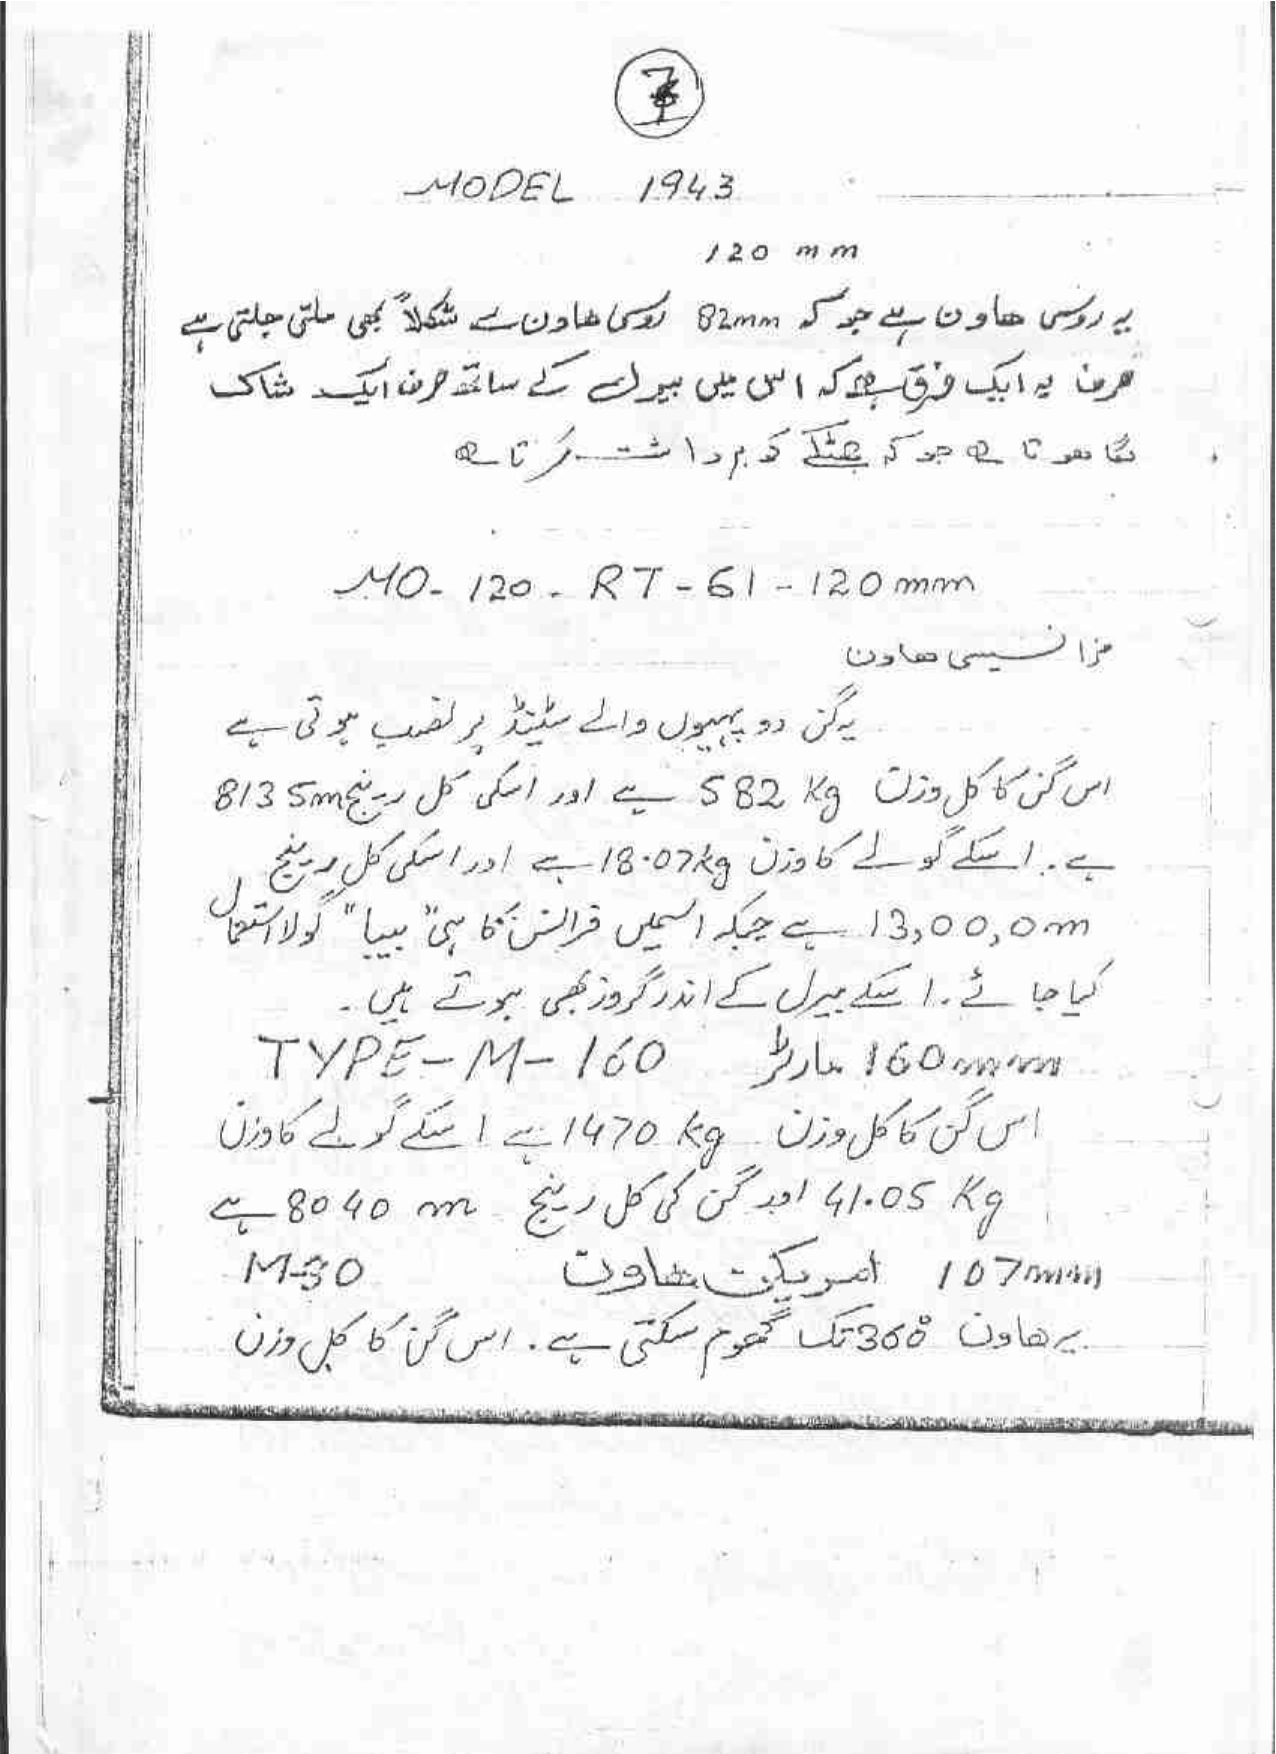 7
MODEL 1943
120 mm
یہ روسی ھاون ہے جو کہ 82mm روسی ھاون سے شکلاً بھی ملتی جلتی ہے
صرف یہ ایک فرق ہے کہ اس میں بیرل کے ساتھ صرف ایک شاک
لگا ھوتا ھے جو کہ جھٹکے کو برداشت کرتا ھے
MO- 120 - RT - 61 - 120mm
فرانسیسی ھاون
یہ گن دو پہیوں والے سٹینڈ پر نصب ہوتی ہے
اس گن کا کل وزن 582 Kg ہے اور اسکی کل رینج 8135m
ہے۔ اسکے گولے کا وزن 18.07kg ہے اور اسکی کل رینج
13,00,0m ہے جبکہ اسمیں فرانس کا ہی "بیپا" گولا استعمال
کیا جائے۔ اسکے بیرل کے اندر گروز بھی ہوتے ہیں۔
160mm مارٹر TYPE-M-160
اس گن کا کل وزن 1470 Kg ہے اسکے گولے کا وزن
41.05 Kg اور گن کی کل رینج 8040 m ہے
107mm امریکن ھاون M-30
یہ ھاون 360° تک گھوم سکتی ہے۔ اس گن کا کل وزن